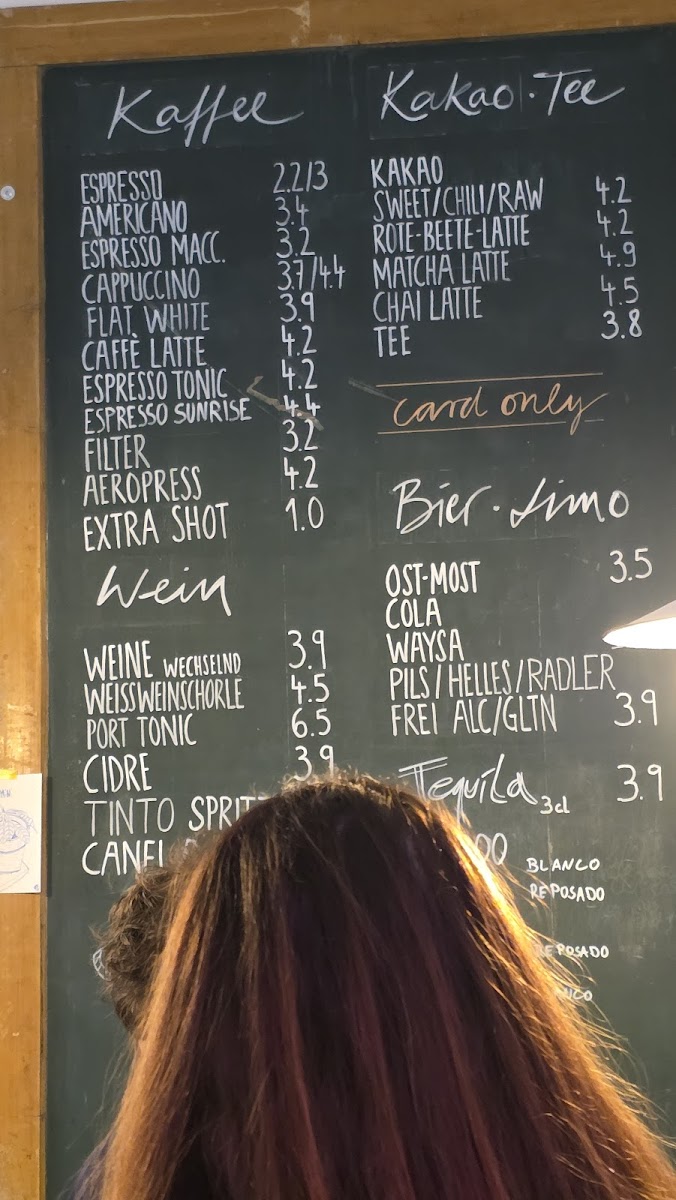 Kaffee
ESPRESSO 2.2/3
AMERICANO 3.4
ESPRESSO MACC. 3.2
CAPPUCCINO 3.7/4.4
FLAT WHITE 3.9
CAFFÈ LATTE 4.2
ESPRESSO TONIC 4.2
ESPRESSO SUNRISE 4.4
FILTER 3.2
AEROPRESS 4.2
EXTRA SHOT 1.0
Wein
WEINE WECHSELND 3.9
WEISSWEINSCHORLE 4.5
PORT TONIC 6.5
CIDRE 3.9
TINTO
Kakao · Tee
KAKAO
SWEET/CHILI/RAW 4.2
ROTE-BEETE-LATTE 4.2
MATCHA LATTE 4.9
CHAI LATTE 4.5
TEE 3.8
card only
Bier · Limo
OST-MOST 3.5
COLA
WAYSA
PILS/HELLES/RADLER
FREI ALC/GLTN 3.9
Tequila 3cl 3.9
BLANCO
REPOSADO
REPOSADO